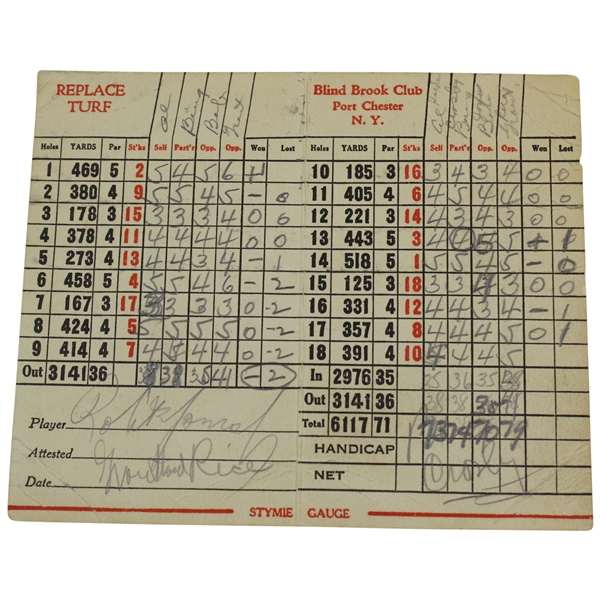 REPLACE TURF
Blind Brook Club
Port Chester
N. Y.
al Bing Bob
Holes YARDS Par St'ks Self Part's Opp. Opp. Won Lost
1 469 5 2 5 4 5 6 +
2 380 4 9 5 5 4 5 - 0
3 178 3 15 3 3 3 4 0 0
4 378 4 11 4 4 4 4 0 0
5 273 4 13 4 4 3 4 - 1
6 458 5 4 5 5 4 6 - 2
7 167 3 17 3 3 3 0 -2
8 424 4 5 5 5 5 5 0 -2
9 414 4 7 4 4 4 -2
Out 3141 36 38 38 35 41 -2
Player
Attested Grantland Rice
Date
Holes YARDS Par St'ks Self Part's Opp. Opp. Won Lost
10 185 3 16 3 4 3 4 0 0
11 405 4 6 4 5 4 4 0 0
12 221 3 14 4 3 4 3 0 0
13 443 5 3 4 5 5 + 1
14 518 5 1 5 5 4 5 - 0
15 125 3 18 3 3 3 0 0
16 331 4 12 4 4 3 4 - 1
17 357 4 8 4 4 4 5 0 1
18 391 4 10 4 4 4 5
In 2976 35 35 36 35 38
Out 3141 36 38 38
Total 6117 71 73 74 70 79
HANDICAP
NET Crosby
STYMIE GAUGE